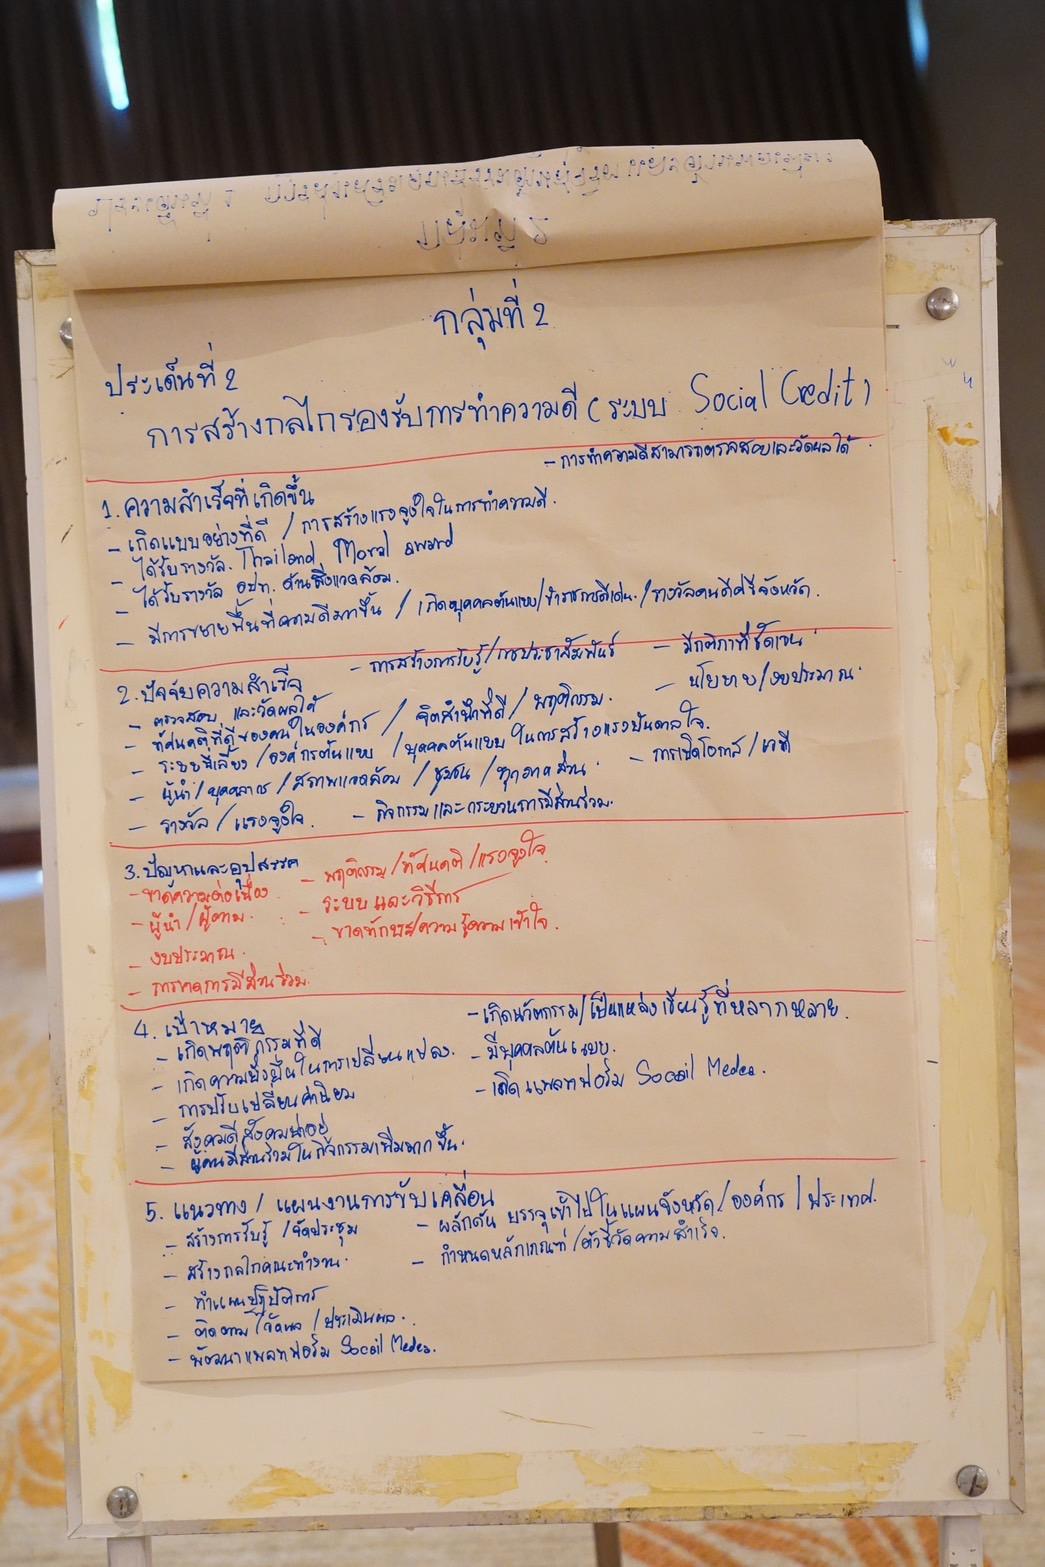 กลุ่มที่ 2
ประเด็นที่ 2
การสร้างกลไกรองรับการทำความดี (ระบบ Social Credit)
- การทำความดีสามารถตรวจสอบและวัดผลได้
1. ความสำเร็จที่เกิดขึ้น
- เกิดแบบอย่างที่ดี / การสร้างแรงจูงใจในการทำความดี.
- ได้รับรางวัล. Thailand Moral award
- ได้รับรางวัล อปท. ด้านสิ่งแวดล้อม.
- มีการขยายพื้นที่ความดีมากขึ้น / เกิดบุคคลต้นแบบ/ข้าราชการดีเด่น./รางวัลคนดีศรีจังหวัด.
2. ปัจจัยความสำเร็จ
- การสร้างการรับรู้/การประชาสัมพันธ์ - มีกติกาที่ชัดเจน
- ตรวจสอบ และวัดผลได้ - นโยบาย/งบประมาณ
- ทัศนคติที่ดีของคนในองค์กร / จิตสำนึกที่ดี / พฤติกรรม.
- ระบบพี่เลี้ยง /องค์กรต้นแบบ /บุคคลต้นแบบ ในการสร้างแรงบันดาลใจ.
- ผู้นำ / บุคลากร / สภาพแวดล้อม / ชุมชน / ทุกภาคส่วน - การเปิดโอกาส / เวที
- รางวัล / แรงจูงใจ. - กิจกรรม และ กระบวนการมีส่วนร่วม.
3. ปัญหาและอุปสรรค
- ขาดความต่อเนื่อง - พฤติกรรม /ทัศนคติ /แรงจูงใจ
- ผู้นำ / ผู้ตาม. - ระบบ และวิธีการ
- งบประมาณ. - ขาดทักษะ/ความรู้ความเข้าใจ.
- การขาดการมีส่วนร่วม.
4. เป้าหมาย - เกิดนวัตกรรม/เป็นแหล่งเรียนรู้ที่หลากหลาย.
- เกิดพฤติกรรมที่ดี - มีบุคคลต้นแบบ.
- เกิดความยั่งยืนในการเปลี่ยนแปลง. - เกิดแพลทฟอร์ม Socail Medea.
- การปรับเปลี่ยนค่านิยม
- สังคมดี สังคมน่าอยู่
- ผู้คนมีส่วนร่วมในกิจกรรมเพิ่มมากขึ้น.
5. แนวทาง / แผนงานการขับเคลื่อน
- สร้างการรับรู้ /จัดประชุม - ผลักดัน บรรจุเข้าไปในแผนจังหวัด/องค์กร / ประเทศ.
- สร้างกลไกคณะทำงาน. - กำหนดหลักเกณฑ์ /ตัวชี้วัดความสำเร็จ.
- ทำแผนปฏิบัติการ
- ติดตาม /วัดผล / ประเมินผล.
- พัฒนาแพลทฟอร์ม Socail Medea.